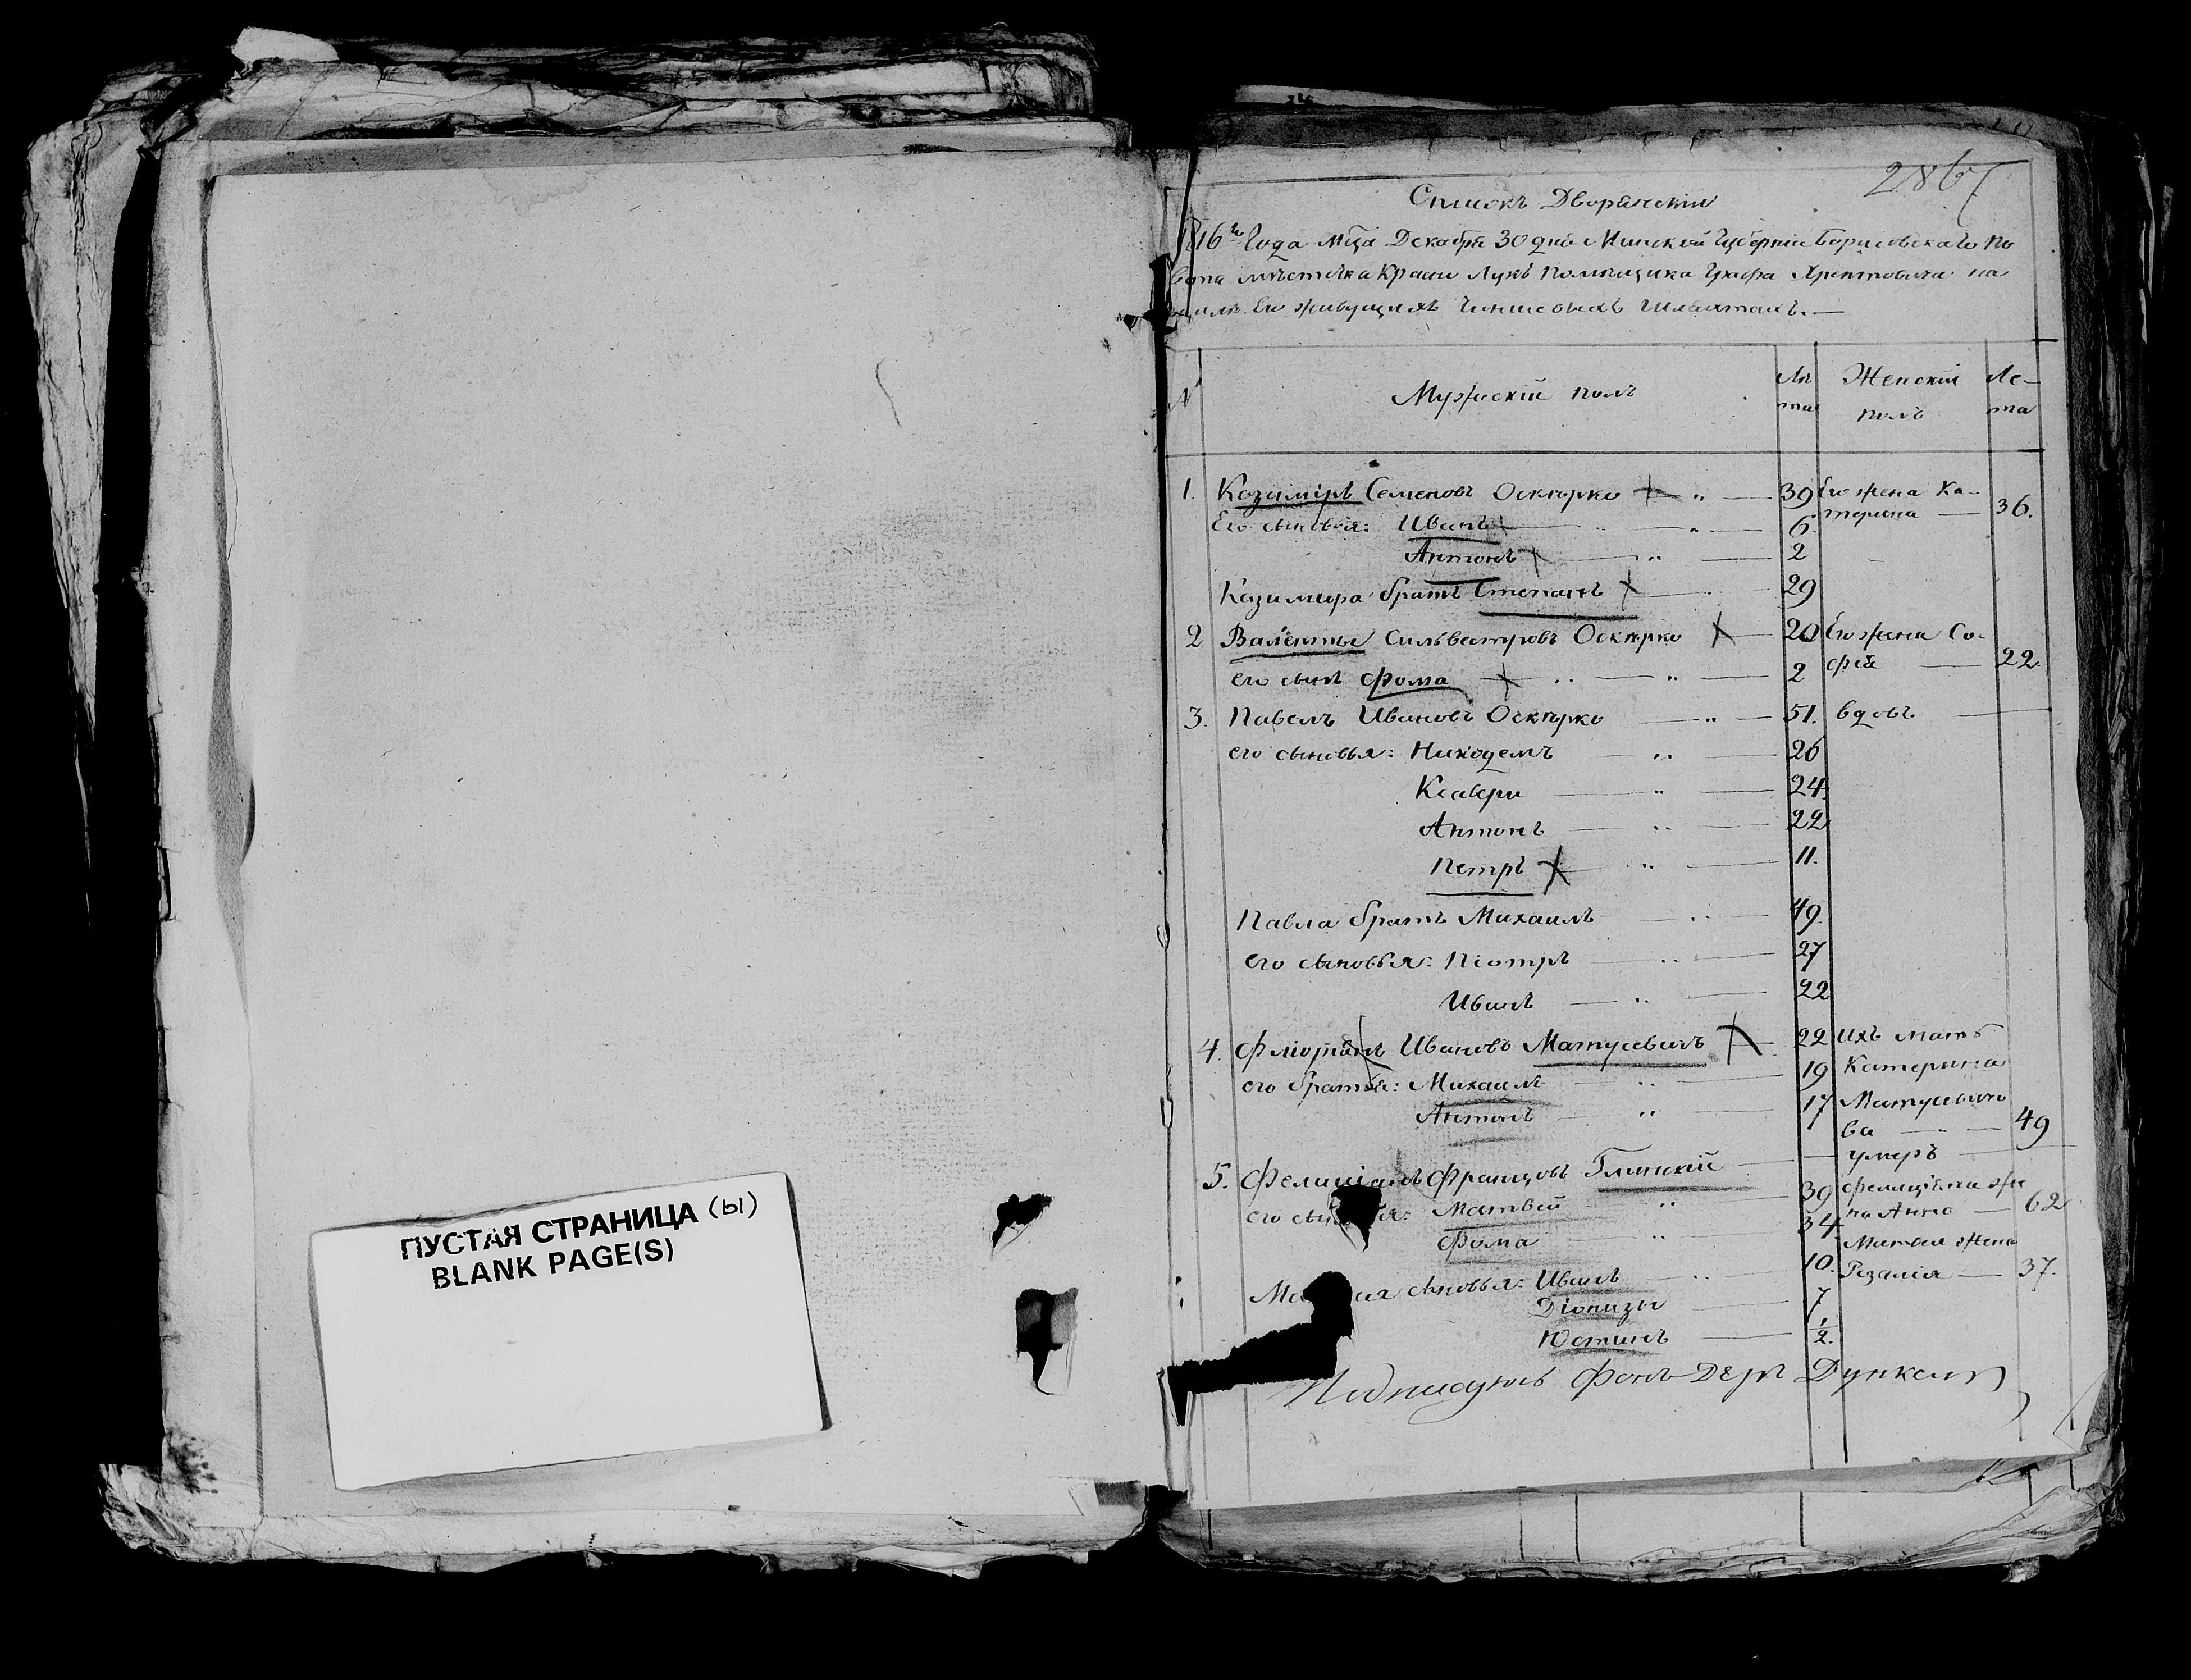 ПУСТАЯ СТРАНИЦА (Ы)
BLANK PAGE(S)
286
Списокъ Дворянскiй
1816го Года Мца Декабря 30 дня Минской Губернiи Борисовскаго По
вета мѣстечка Красн Лукъ Помѣщика Графа Хрептовича на
землѣ Его живущихъ Чиншовыхъ Шляхтахъ.—
№
Мужескiй полъ
Лѣ
та
Женскiй
полъ
Ле–
та
1. Казимiръ Семеновъ Оскѣрко 39 Его жена Ка–
терина — 36.
Его сыновья: Иванъ 6
Антонъ 2
Казимира братъ Степанъ 29
2 Валенты Сильвестровъ Оскѣрко 20 Его жена Со–
фiя — 22.
его сынъ Фома 2
3. Павелъ Ивановъ Оскѣрко 51. вдовъ
его сыновья: Никодемъ 26
Ксавери 24
Антонъ 22
Петръ 11.
Павла братъ Михаилъ 49.
его сыновья: Пiотръ 27
Иванъ 22
4. Флiорiанъ Ивановъ Матусевичъ 22 Ихъ мать
его братья: Михаилъ 19 Катерина
Антонъ 17 Матусевичо
ва — 49
5. Фелицiанъ Францовъ Глинскiй — умеръ
его сыновья: Матвей 39 Фелицiана же
на Анна — 62
Фома 34
Матвея жена
Розалiя — 37.
Ма ея сыновья: Иванъ 10.
Дiонизы 7
Юстинъ 1/2.
Подписунъ Фонъ Деръ Дункенъ